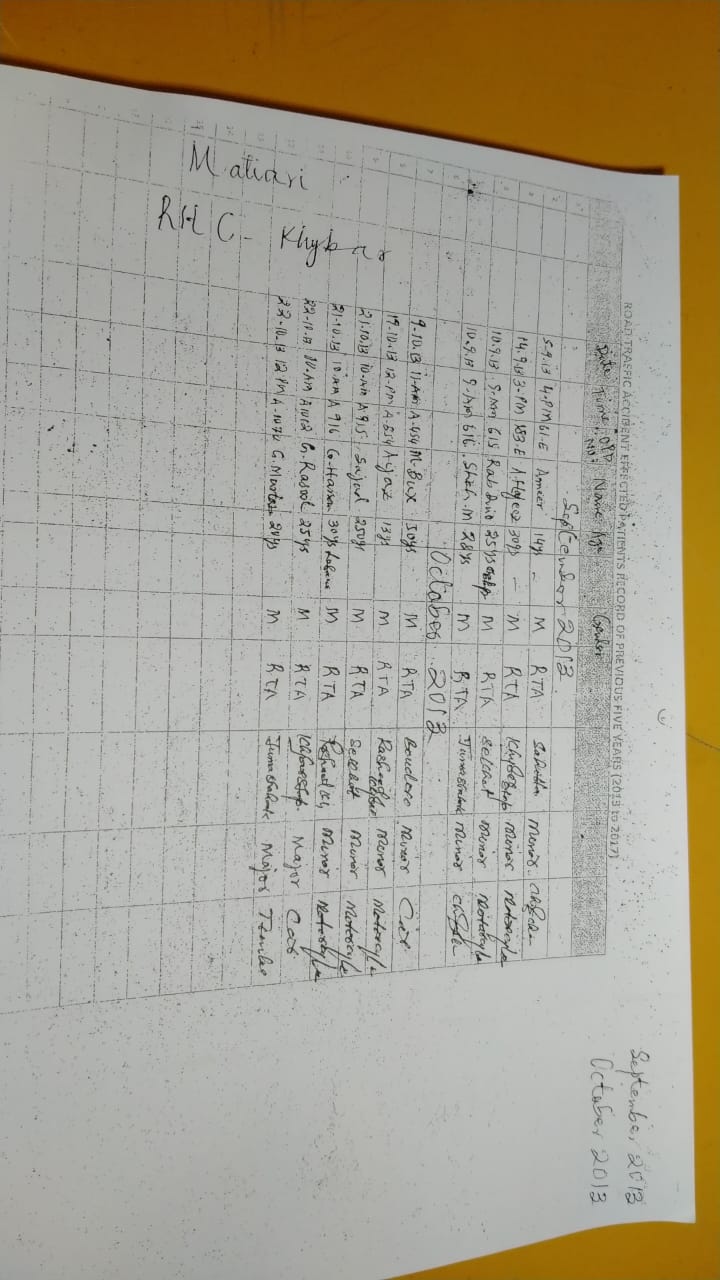 September 2013
October 2013
ROAD TRAFFIC ACCIDENT EFFECTED PATIENTS RECORD OF PREVIOUS FIVE YEARS (2013 to 2017)
Date Time OPD No: Name Age Gender
September 2013
5-9-13 4-PM 61-E Ameer 14ys M RTA minor
14.9.13 3-PM 183-E A.Hafeez 30ys M RTA minor Motorcycle
10.9.13 9-AM 615 Rab Dino 25ys M RTA Selhat minor Motorcycle
10.9.13 9-AM 616 Shah.M 28ys M RTA minor
October 2013
9-10.13 11-AM A-454 M-Bux 50ys M RTA minor Car
19-10.13 12-PM A-554 Ayaz 13ys M RTA minor Motorcycle
21-10.13 10-AM A915 Sajad M RTA Selhat minor Motorcycle
21-10.13 10-AM A 916 G-Hassan 30ys M RTA minor Motorcycle
22-10-13 10-AM A1012 G.Rasool 25ys M RTA Major Car
22-10.13 12 PM G.Murtaza 20ys M RTA Major
Matiari
RHC- Khybar